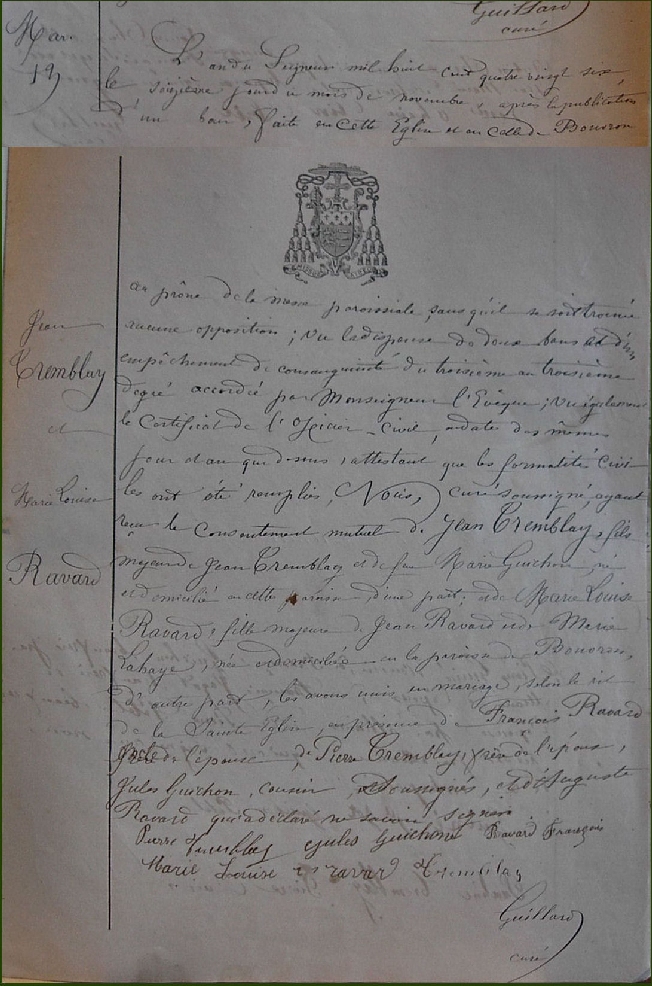 Guillard
curé
Mar.
L'an du Seigneur mil huit cent quatre vingt six
le seizième jour du mois de novembre, après la publication
d'un ban, faite en cette Eglise et en celle de Bouvron
au prône de la messe paroissiale, sans qu'il se soit trouvé
aucune opposition ; vu la dispense de deux bans et d'un
empêchement de consanguinité du troisième au troisième
degré accordée par Monseigneur l'Evêque ; vu également
le Certificat de l'Officier civil, en date des mêmes
jour et an que dessus, attestant que les formalités civi-
les ont été remplies, Nous, curé soussigné, ayant
reçu le consentement mutuel de Jean Tremblay, fils
majeur de Jean Tremblay et de feu Marie Guichon, né
et domicilié en cette paroisse d'une part ; et de Marie Louise
Ravard, fille majeure de Jean Ravard et de Marie
Lahaye, née et domiciliée en la paroisse de Bouvron,
d'autre part, les avons unis en mariage, selon le rit
de la Sainte Eglise, en présence de François Ravard
de l'épouse, de Pierre Tremblay, frère de l'époux,
Jules Guichon, cousin soussignés, et d'Auguste
Ravard qui a déclaré ne savoir signer
Jean
Tremblay
et
Marie Louise
Ravard
Pierre Tremblay Jules Guichon Ravard François
Marie Louise ravard Tremblay
Guillard
curé